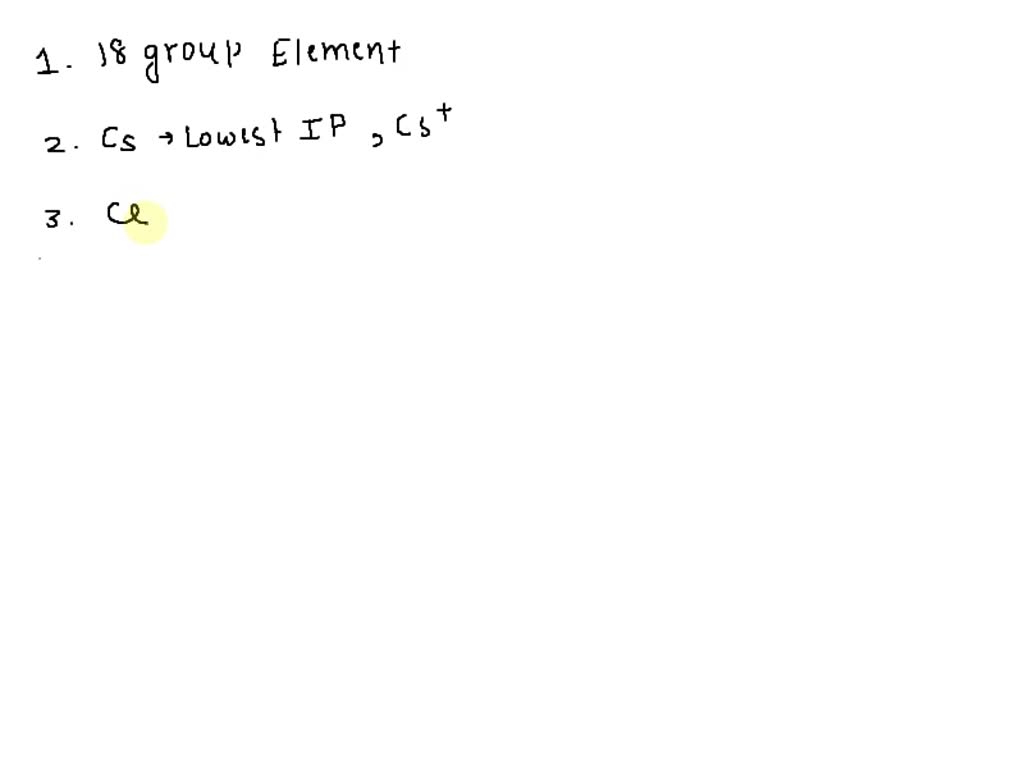 1. 18 group Element
2. Cs → Lowest IP, Cs⁺
3. Cl